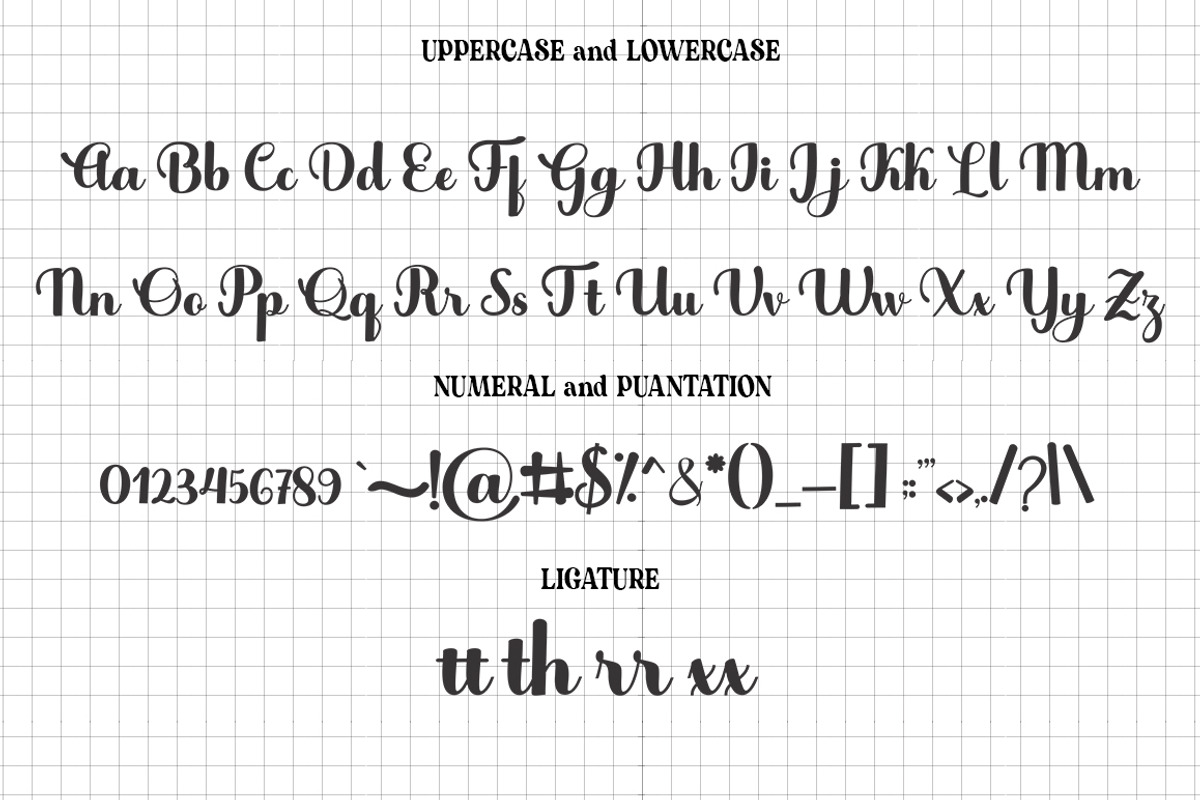 UPPERCASE and LOWERCASE
Aa Bb Cc Dd Ee Ff Gg Hh Ii Jj Kk Ll Mm
Nn Oo Pp Qq Rr Ss Tt Uu Vv Ww Xx Yy Zz
NUMERAL and PUANTATION
0123456789 `~!@#$%^&*()_–[] :;"'<>,./?|\
LIGATURE
tt th rr xx